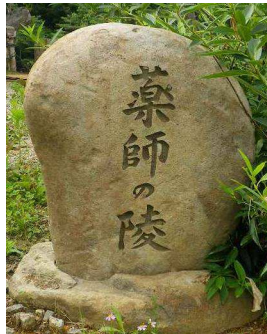 薬師の陵